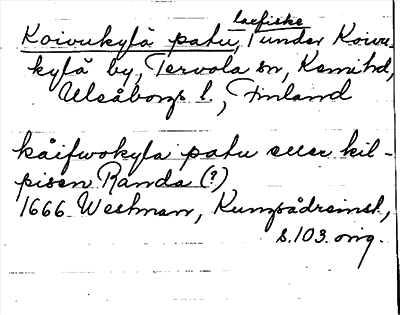 laxfiske
Koivukylä patu, under Koivu-
kylä by, Tervola sn, Kemi hd,
Uleåborgs l., Finland
kåifwokyla patu eller kil-
pisen Randa (?)
1666 Westman, Kungsådreinst,
s. 103. orig.